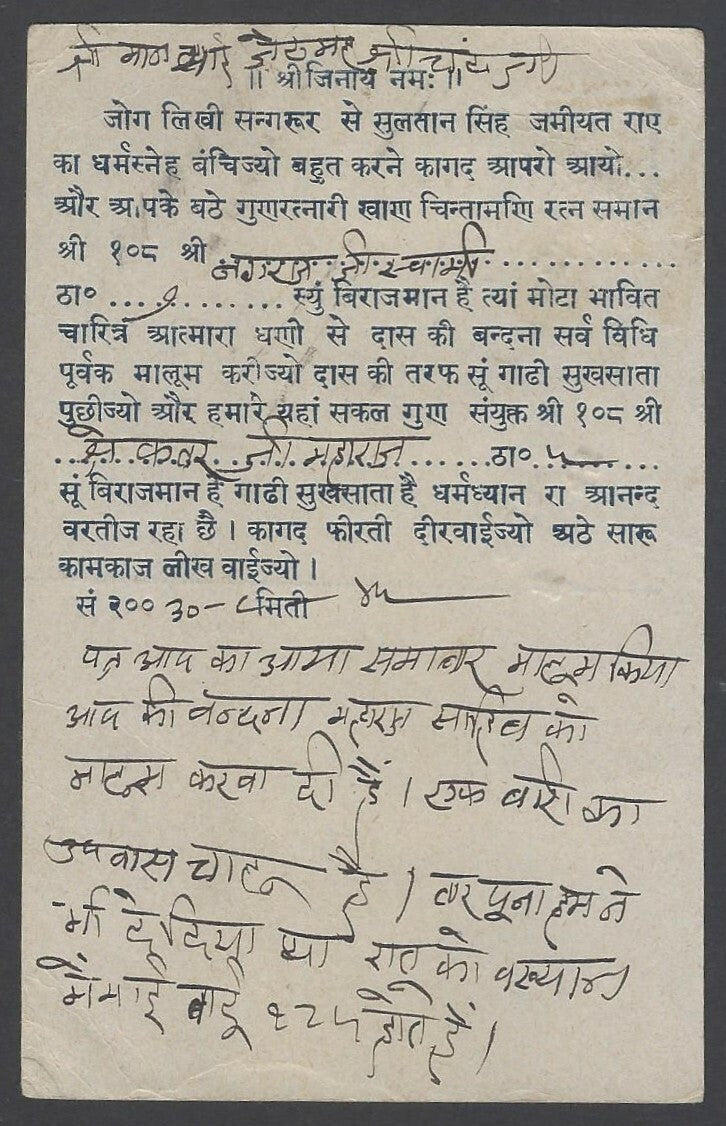 श्री मान भाई जेठमल श्रीचंद जी
॥ श्रीजिनाय नमः ॥
जोग लिखी सन्गरूर से सुलतान सिंह जमीयत राए
का धर्मस्नेह बंचिज्यो बहुत करने कागद आपरो आयो...
और आपके बठे गुणरत्नारी खाण चिन्तामणि रत्न समान
श्री १०८ श्री जी स्वामी ............
ठा० ............ स्युं बिराजमान है त्यां मोटा भावित
चारित्र आत्मारा धणी से दास की बन्दना सर्व विधि
पूर्वक मालूम करीज्यो दास की तरफ सूं गाढी सुखसाता
पुछीज्यो और हमारे यहां सकल गुण संयुक्त श्री १०८ श्री
जी महाराज ......ठा० ५ ...
सूं बिराजमान हैं गाढी सुखसाता है धर्मध्यान रा आनन्द
वरतीज रहा छै । कागद फीरती दीरवाईज्यो अठे सारू
कामकाज लीख वाईज्यो ।
सं २०० ३०-८ मिती
पत्र आप का आया समाचार मालूम किया
आप की वन्दना महाराज साहिब को
मालूम करवा दी है । एक बारी का
उपवास चालू है । तार पूना हमने
भी दे दिया था रात को वख्यान
में भाई बाई १२५ होते हैं ।